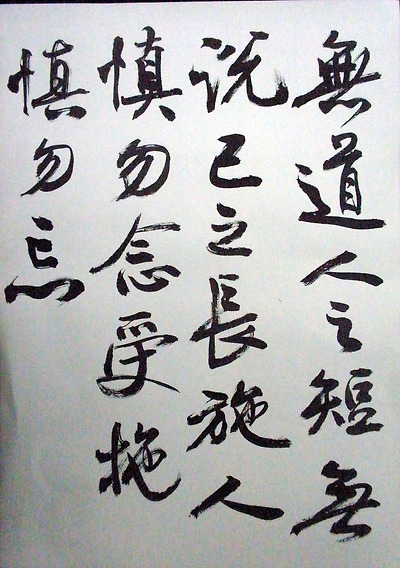 無道人之短無
说己之長施人
慎勿念受施
慎勿忘